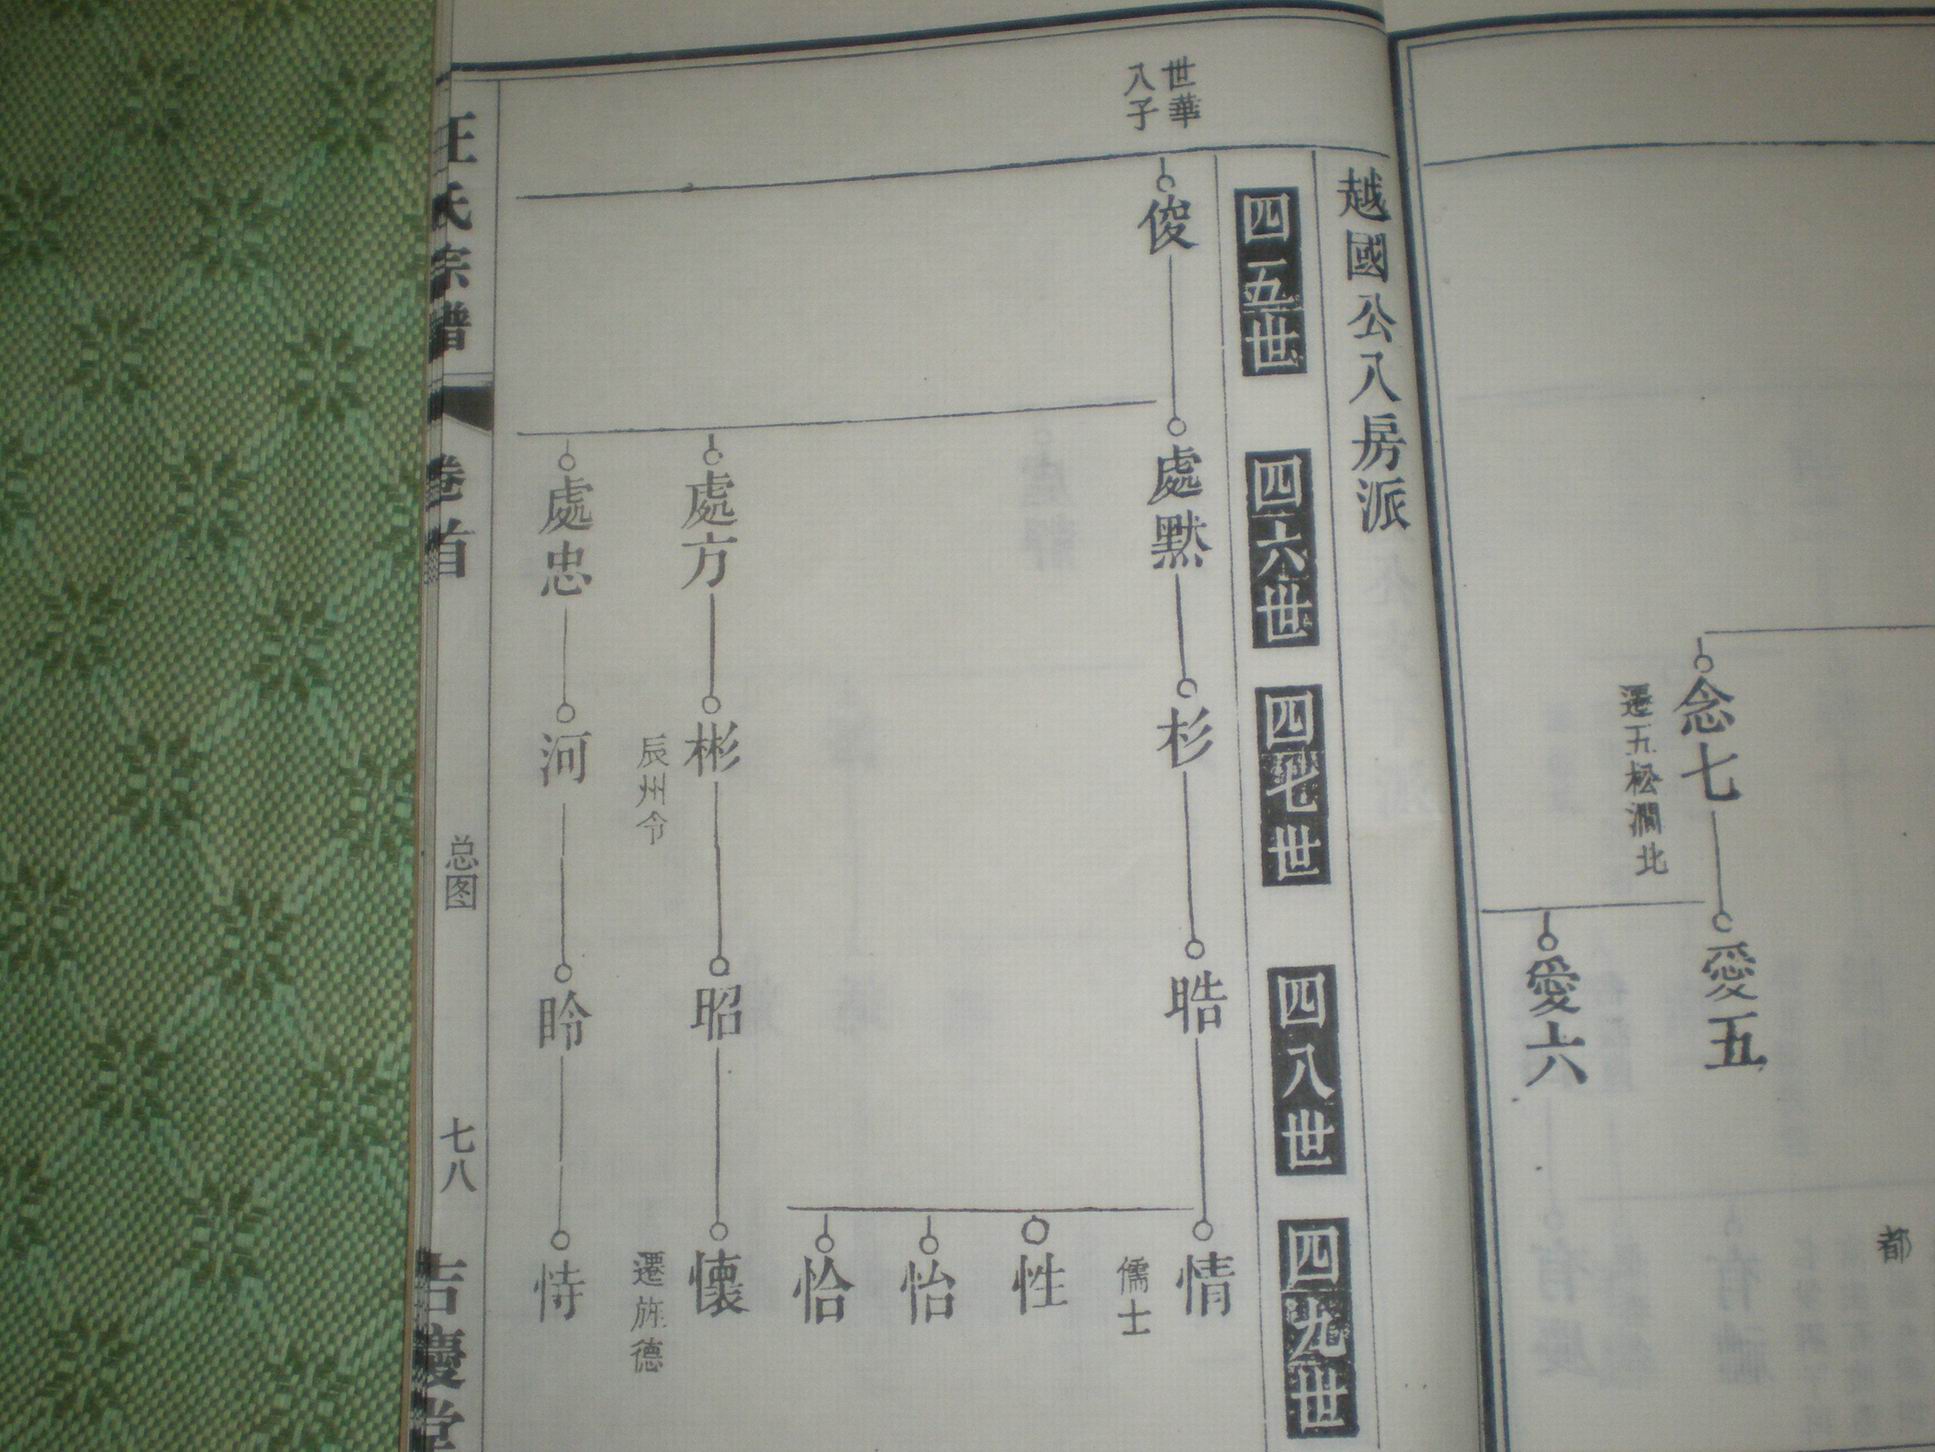 都
念七
遷五松澗北
愛五
愛六
越國公八房派
四五世
四六世
四七世
四八世
四九世
世華
八子
俊
處默
處方
處忠
杉
彬
辰州令
河
晧
昭
昤
情
儒士
性
怡
恰
懷
遷旌德
恃
汪氏宗譜
卷首
总图
七八
吉慶堂